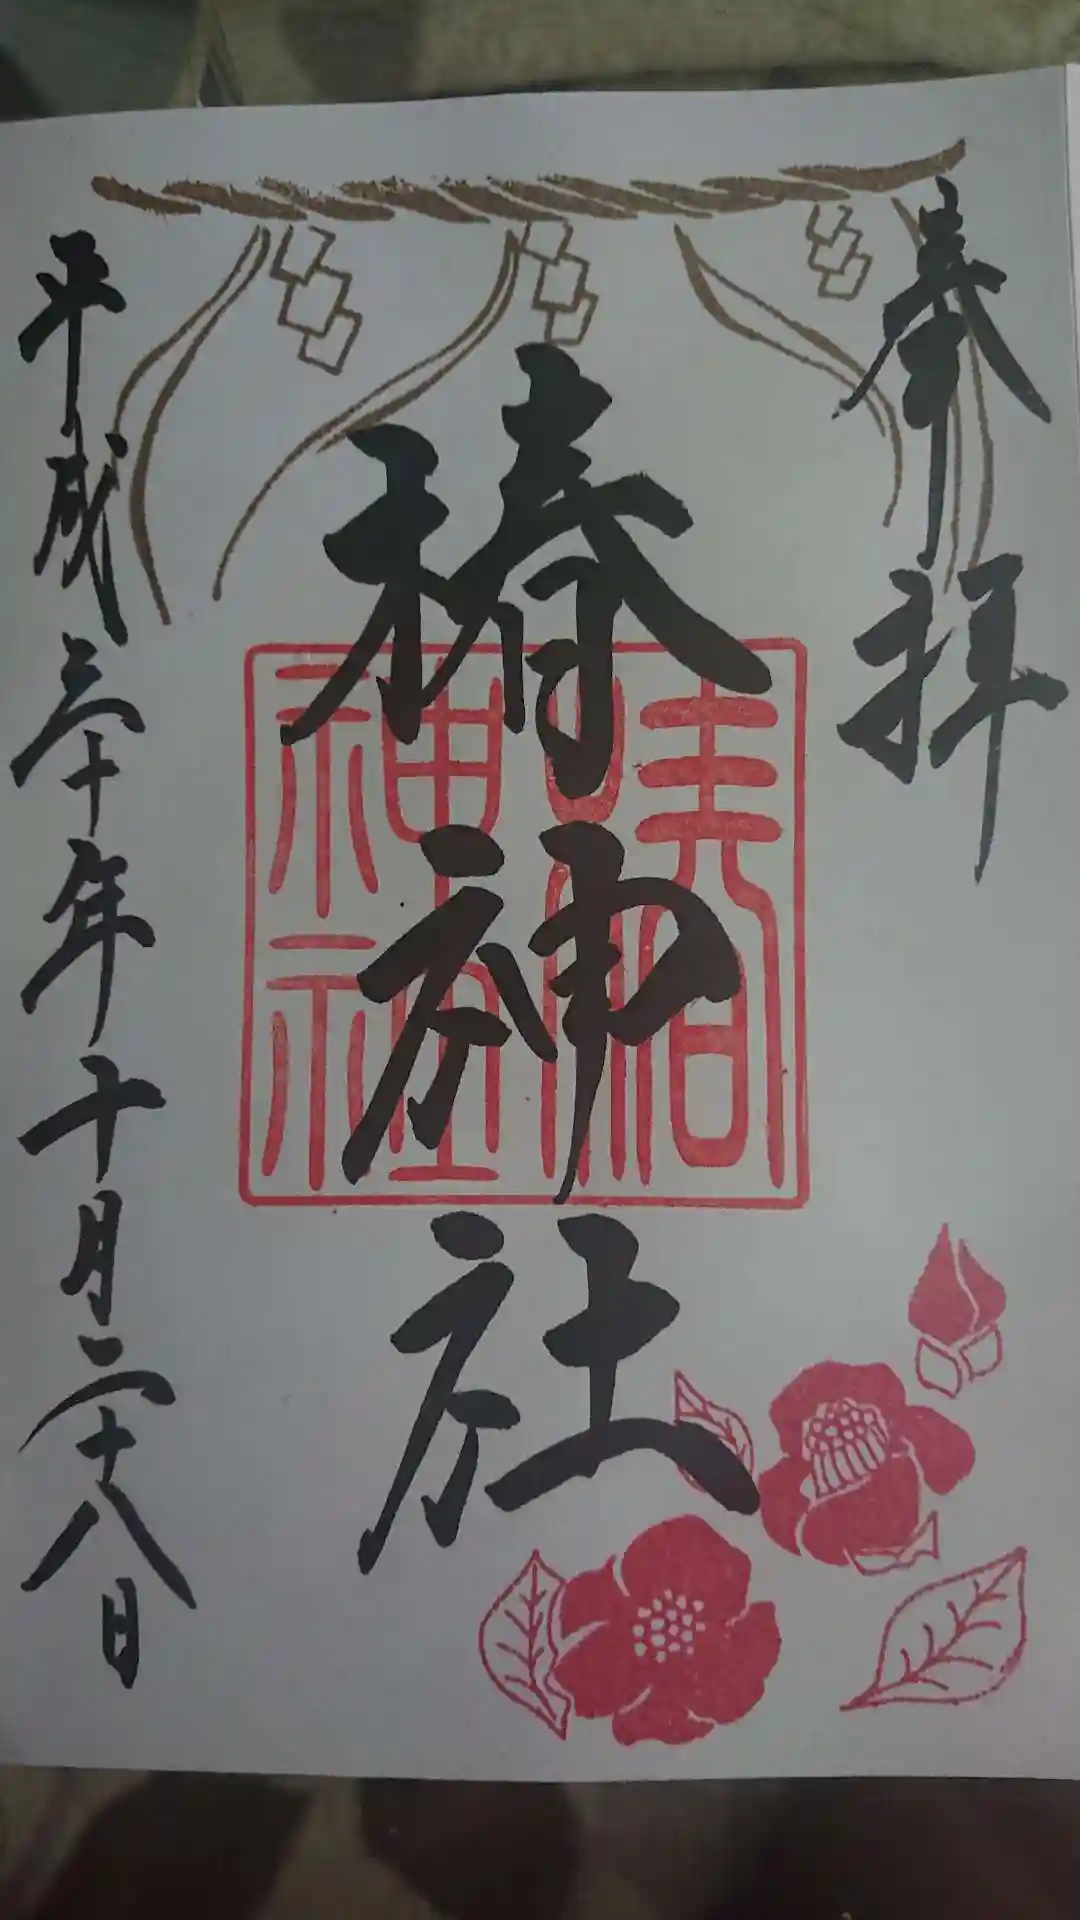 奉拝
椿神社
神社
平成三十年十月二十八日